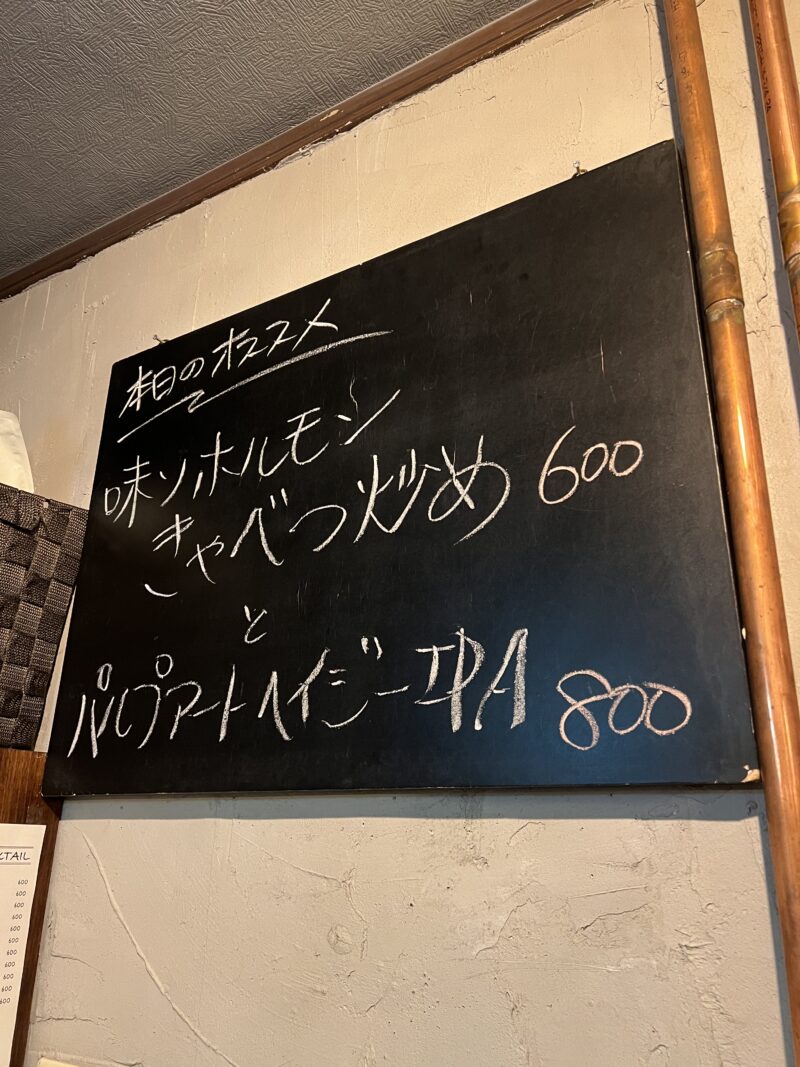 本日のオススメ
味ソホルモン
きゃべつ炒め 600
と
パルプアートヘイジーIPA 800
CTAIL
600
600
600
600
600
600
600
600
600
600
600